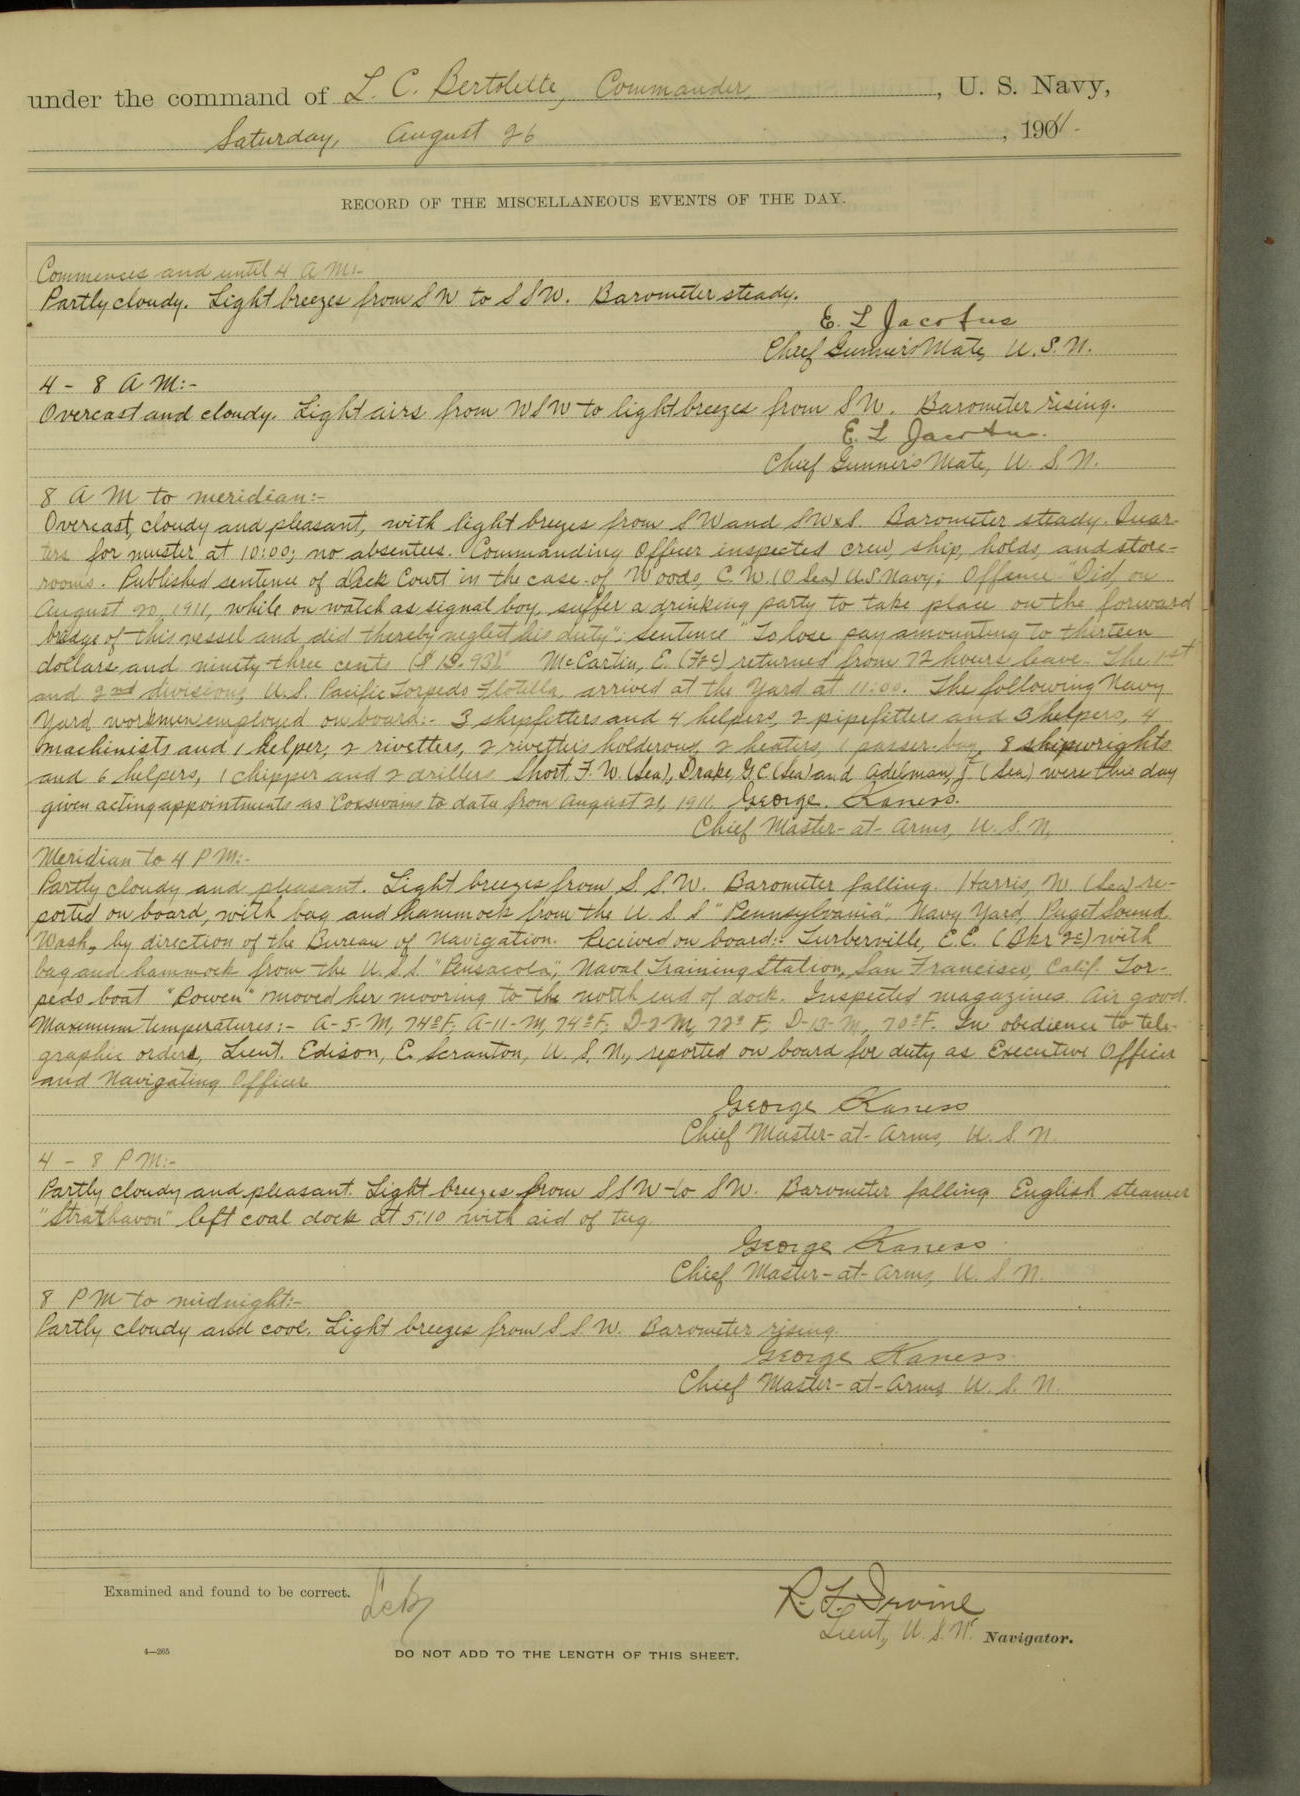 under the command of L. C. Bertolette, Commander, U. S. Navy,
Saturday, August 26, 1911.
RECORD OF THE MISCELLANEOUS EVENTS OF THE DAY.
Commences and until 4 A M:-
Partly cloudy. Light breezes from SW to SSW. Barometer steady.
E. L Jacobus
Chief Gunner's Mate, U. S. N.
4 - 8 A M:-
Overcast and cloudy. Light airs from WSW to light breezes from SW. Barometer rising.
E. L Jacobus.
Chief Gunner's Mate, U. S. N.
8 A M to meridian:-
Overcast, cloudy and pleasant, with light breezes from SW and SWxS. Barometer steady. Quar-
ters for muster at 10:00; no absentees. Commanding Officer inspected crew, ship, holds, and store-
rooms. Published sentence of deck Court in the case of Woods, C. W. (O Sea) U.S. Navy; Offence "Did, on
August 20, 1911, while on watch as signal boy, suffer a drinking party to take place on the forward
bridge of this vessel and did thereby neglect his duty"; sentence "To lose pay amounting to thirteen
dollars and ninety-three cents ($ 13.93)." McCartin, E. (F2c) returned from 72 hours leave. The 1st
and 2nd divisions, U.S. Pacific Torpedo Flotilla, arrived at the Yard at 11:00. The following Navy
Yard workmen employed on board:- 3 shipfitters and 4 helpers, 2 pipefitters and 3 helpers, 4
machinists and 1 helper, 2 rivetters, 2 rivetter's holderons, 2 heaters, 1 passer-boy, 8 shipwrights
and 6 helpers, 1 chipper and 2 drillers. Short, F. W. (Sea), Drake, G C (Sea) and Adelman, J. (Sea) were this day
given acting appointments as Coxswains to date from August 21, 1911. George Kaness.
Chief Master-at-Arms, U. S. N.
Meridian to 4 P M:-
Partly cloudy and pleasant. Light breezes from S S.W. Barometer falling. Harris, W. (Sea) re-
ported on board, with bag and hammock from the U. S. S "Pennsylvania", Navy Yard, Puget Sound
Wash., by direction of the Bureau of Navigation. Received on board:- Turberville, E.E. (Bkr 2c) with
bag and hammock from the U.S.S. "Pensacola", Naval Training Station, San Francisco, Calif. Tor-
pedo boat "Rowen" moved her mooring to the north end of dock. Inspected magazines. Air good.
Maximum temperatures:- A-5-M, 74°F; A-11-M, 74°F; D-2-M, 72° F; D-13-M, 70°F. In obedience to tele-
graphic orders, Lieut. Edison, E. Scranton, U. S. N., reported on board for duty as Executive Officer
and Navigating Officer
George Kaness
Chief Master-at-Arms, U. S. N.
4 - 8 P M:-
Partly cloudy and pleasant. Light breezes from SSW to SW. Barometer falling. English steamer
"Strathavon" left coal dock at 5:10 with aid of tug
George Kaness
Chief Master-at-Arms, U. S. N.
8 P M to midnight:-
Partly cloudy and cool. Light breezes from S S W. Barometer rising.
George Kaness
Chief Master-at-Arms, U. S. N.
Examined and found to be correct. LCB
R. F. Irvine
Lieut, U. S. N. Navigator.
4—265
DO NOT ADD TO THE LENGTH OF THIS SHEET.